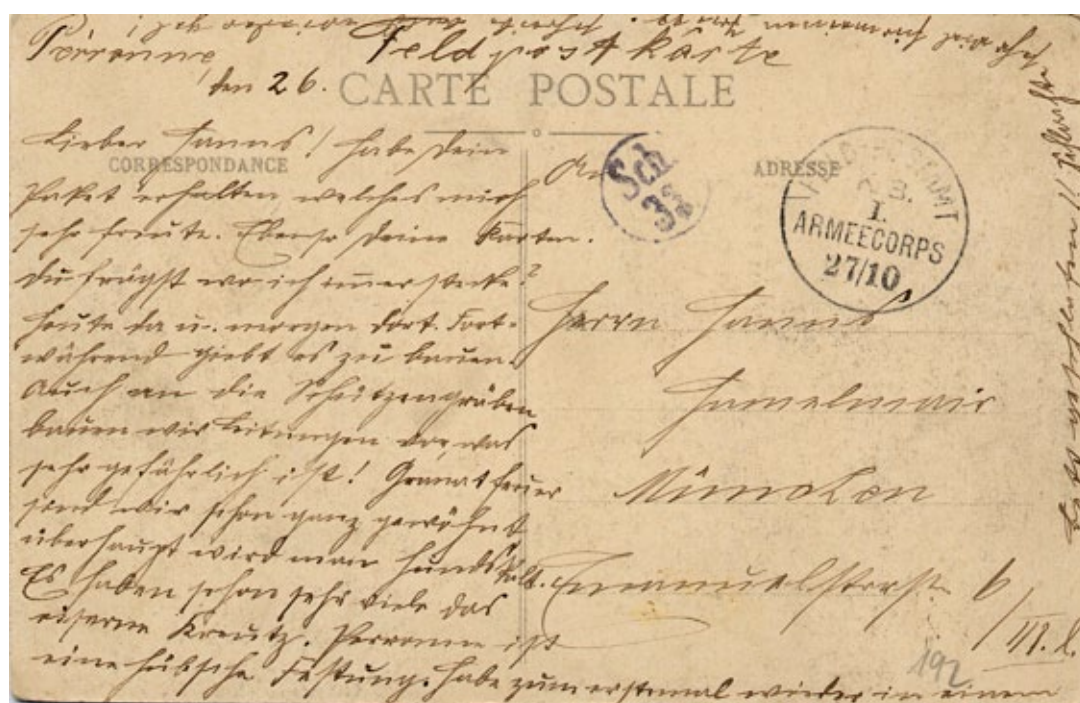 Perronne,
Feldpostkarte
den 26.
CARTE POSTALE
CORRESPONDANCE
ADRESSE
Lieber Hanns! Habe dein
Paket erhalten welches mich
sehr freute. Ebenso deine Karten.
Du frägst wo ich immer stecke?
Heute da u. morgen dort. Fort-
während giebt es zu bauen.
Auch an die Schützengräben
bauen wir Leitungen vor, was
sehr gefährlich ist! Granatfeuer
sind wir schon ganz gewöhnt
überhaupt wird man hundskalt.
Es haben schon sehr viele das
eiserne Kreutz. Perronne ist
eine hübsche Festung. Habe zum erstenmal wieder in einem
Bett geschlafen!!
An
Sch.
33
I.
ARMEECORPS
27/10
Herrn Hanns
Hamelmair
München
Emanuelstrass. 6
/III. l.
192